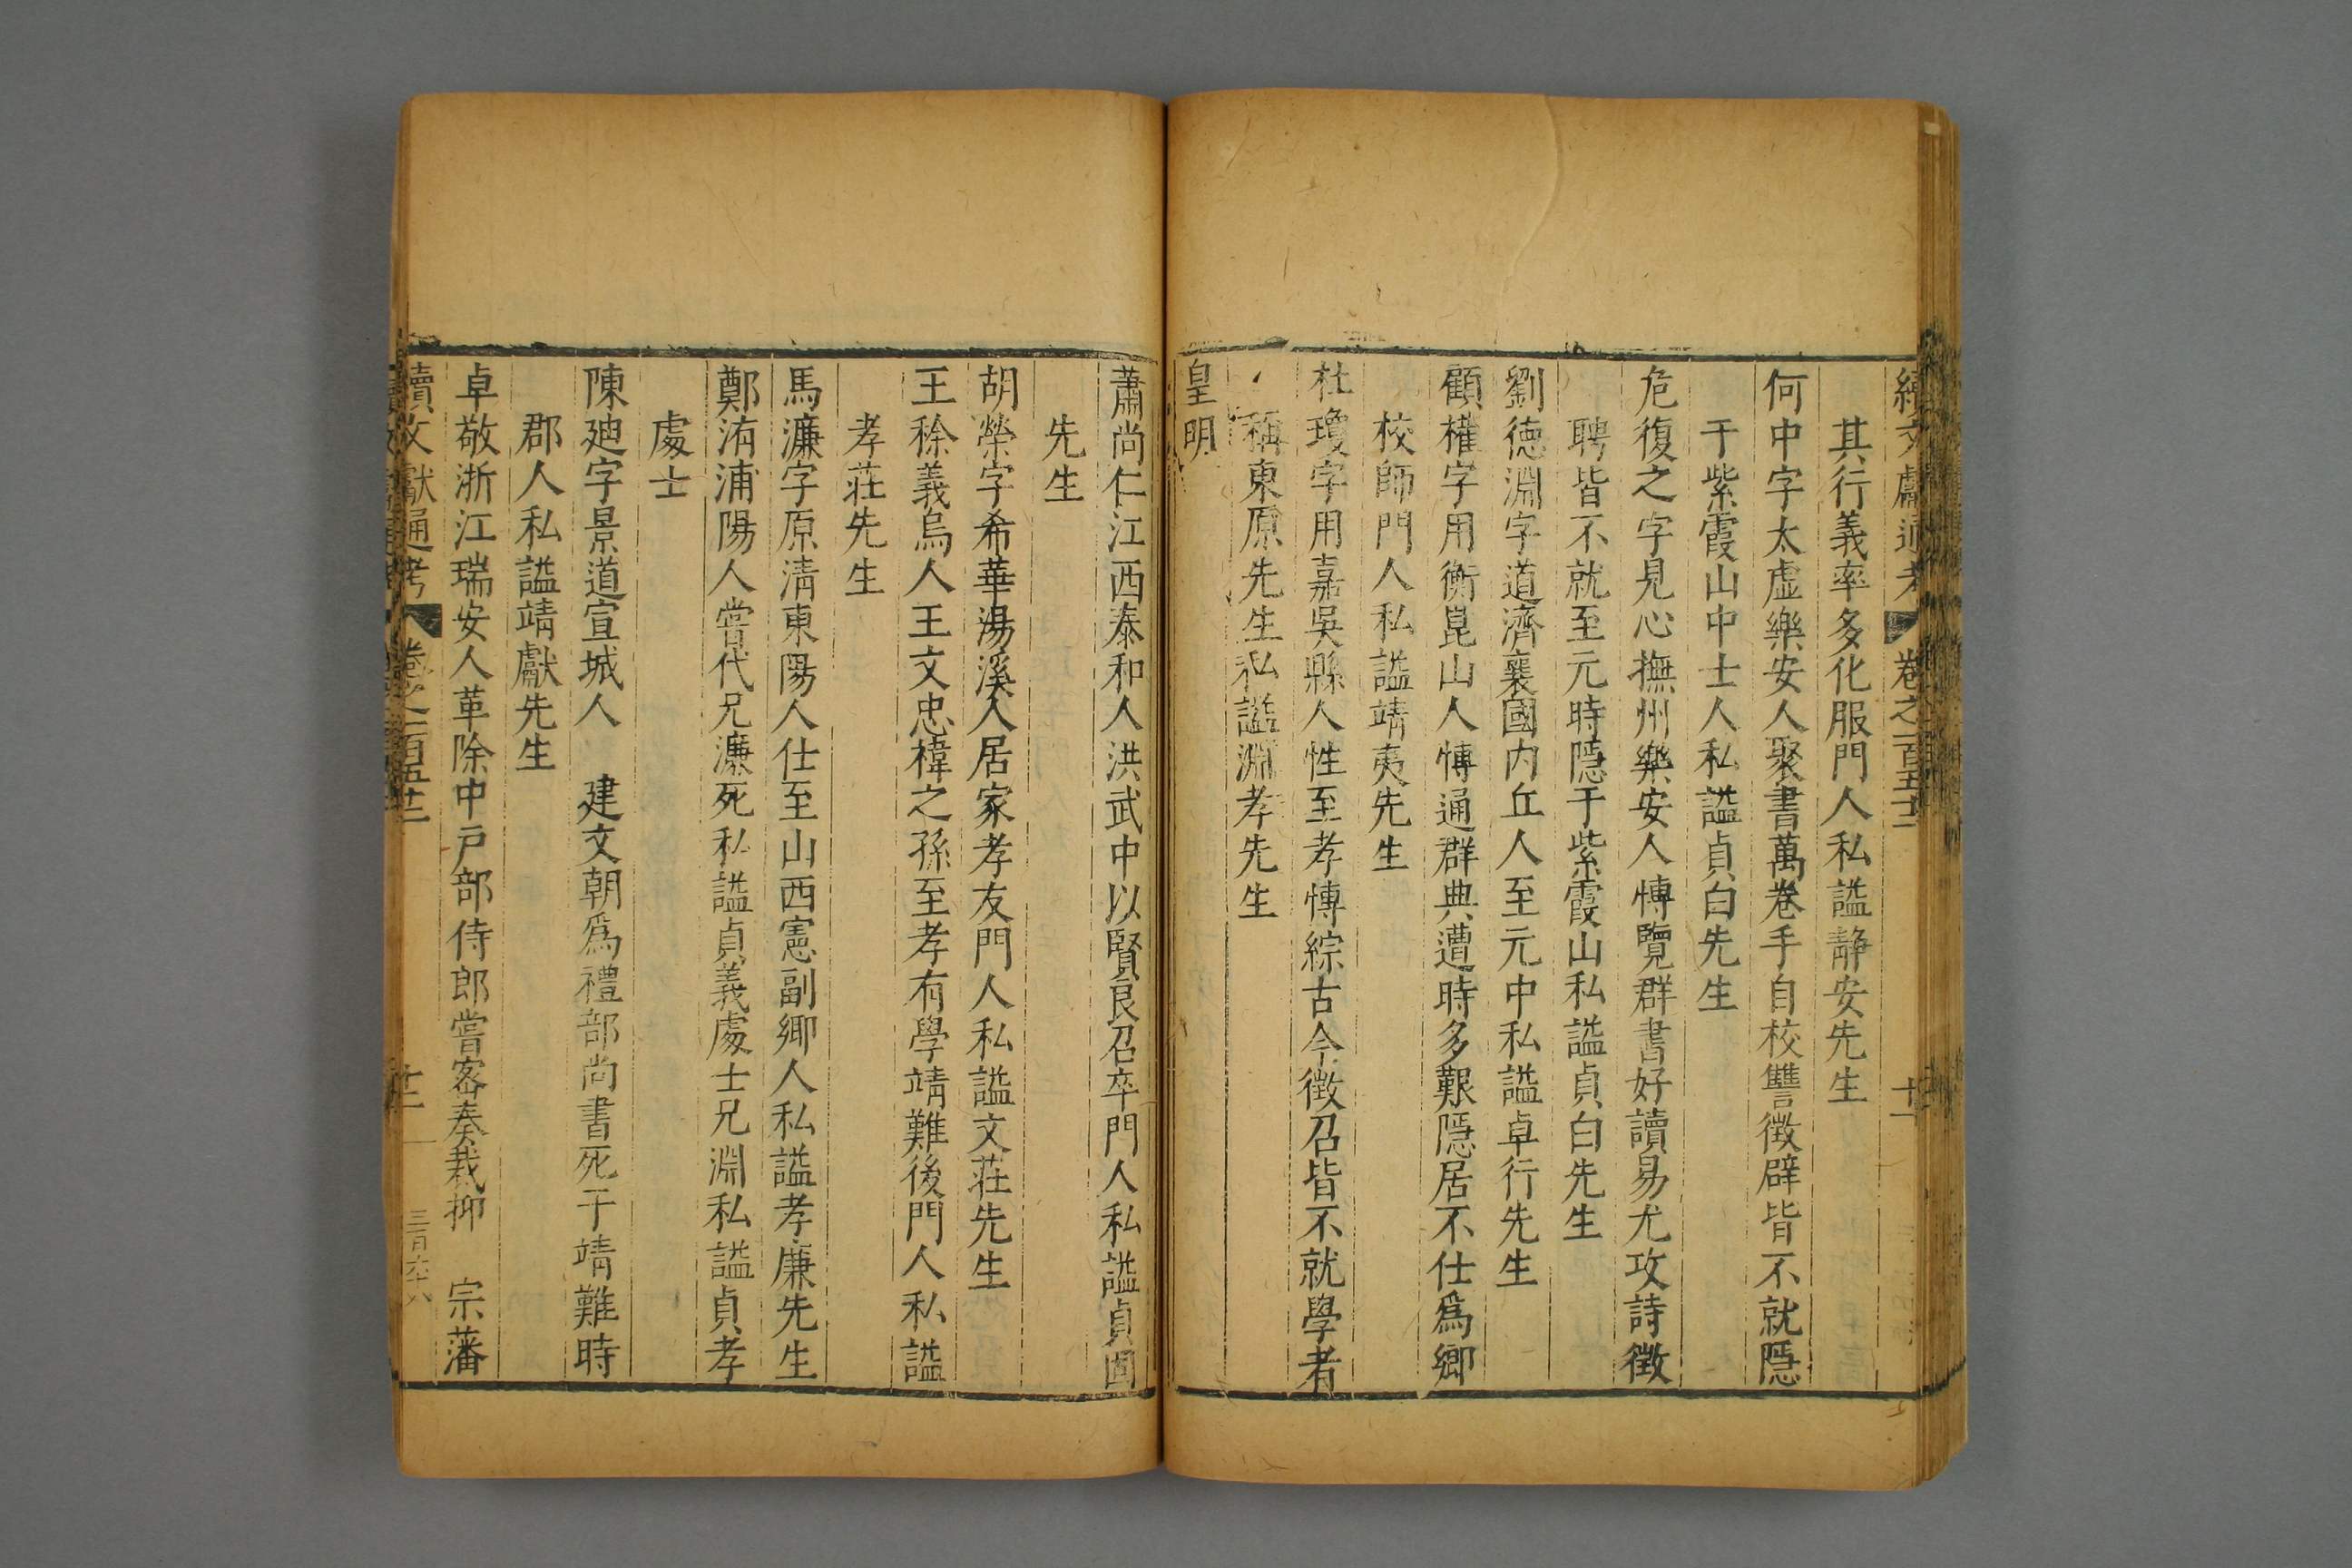 續文獻通考 卷之一百五十二 十一
其行義率多化服門人私謚靜安先生
何中字太虛樂安人聚書萬卷手自校讐徵辟皆不就隱
于紫霞山中士人私謚貞白先生
危復之字見心撫州樂安人愽覽群書好讀易尤攻詩徵
聘皆不就至元時隱于紫霞山私謚貞白先生
劉德淵字道濟襄國内丘人至元中私謚卓行先生
顧權字用衡崑山人愽通群典遭時多艱隱居不仕爲鄉
校師門人私謚靖夷先生
杜瓊字用嘉吳縣人性至孝愽綜古今徵召皆不就學者
稱東原先生私謚淵孝先生
皇明
蕭尚仁江西泰和人洪武中以賢良召卒門人私謚貞固
先生
胡榮字希華湯溪人居家孝友門人私謚文莊先生
王稌義烏人王文忠禕之孫至孝有學靖難後門人私謚
孝莊先生
馬濂字原清東陽人仕至山西憲副鄉人私謚孝廉先生
鄭洧浦陽人嘗代兄濂死私謚貞義處士兄淵私謚貞孝
處士
陳廸字景道宣城人 建文朝爲禮部尚書死于靖難時
郡人私謚靖獻先生
卓敬浙江瑞安人革除中戸部侍郎嘗密奏裁抑 宗藩
續文獻通考 卷之一百五十二 十二 三百六十八